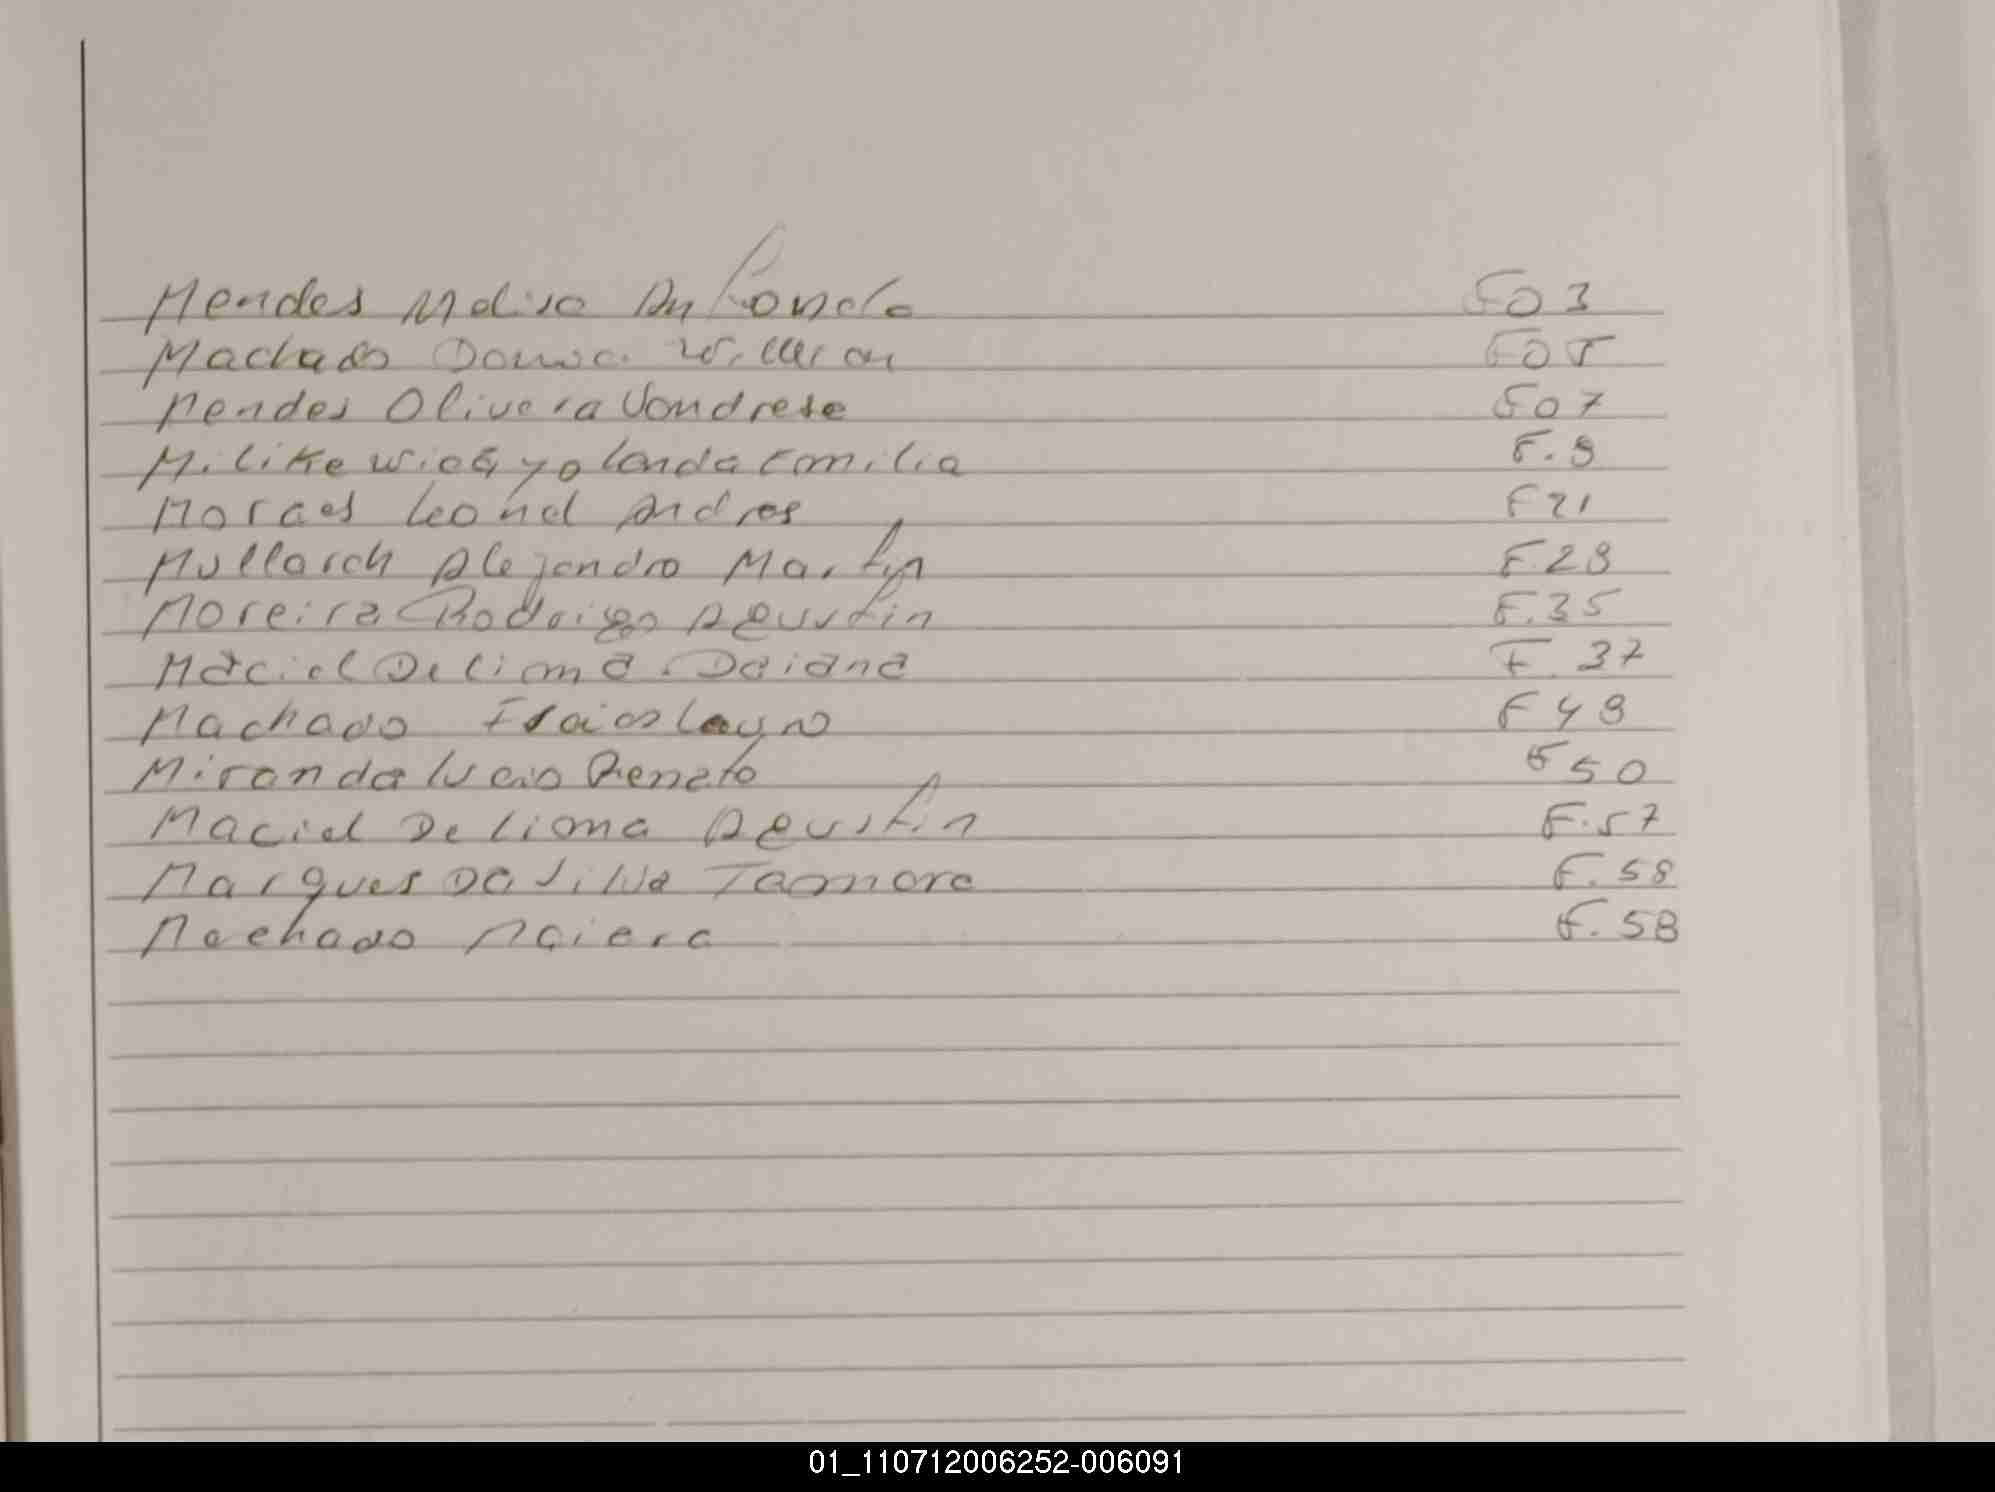 Mendes Melisa Antonela F03
Machado Willian F05
Mendes Olivera Vondrese F07
Milikewicz yolanda Emilia F.9
Moraes Leonel Andres F21
Mullasch Alejandro Martin F.28
Moreira Rodrigo Agustin F.35
Maciel De Lima. Daiana F.37
Machado F49
Miranda Lucio Renato F50
Maciel De Lima Agustin F.57
Marques Da Silva Tamara F.58
Machado Maiera F.58
01_110712006252-006091